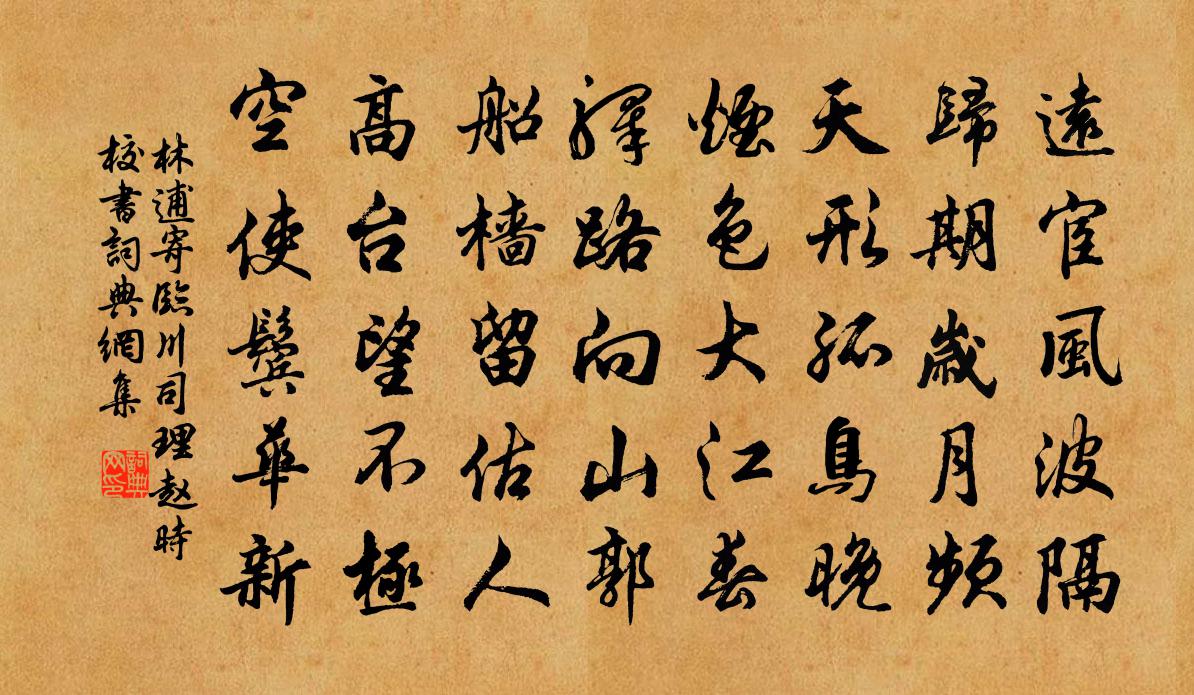 遠宦風波隔
歸期歲月頻
天形孤鳥晚
煙色大江春
驛路向山郭
船檣留估人
高台望不極
空使鬢華新
林逋寄臨川司理趙時
校書詞典網集
詞典網印